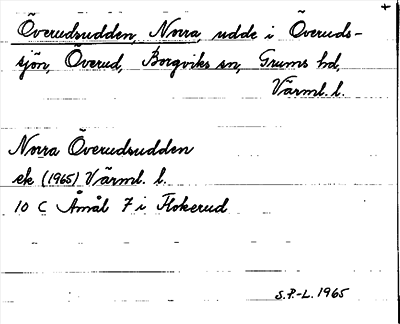 +
Överudsudden, Norra, udde i Överuds-
sjön, Överud, Borgviks sn, Grums hd,
Värml. l.
Norra Överudsudden
ek (1965) Värml. l.
10 C Åmål 7 i Flokerud
S.P.-L. 1965